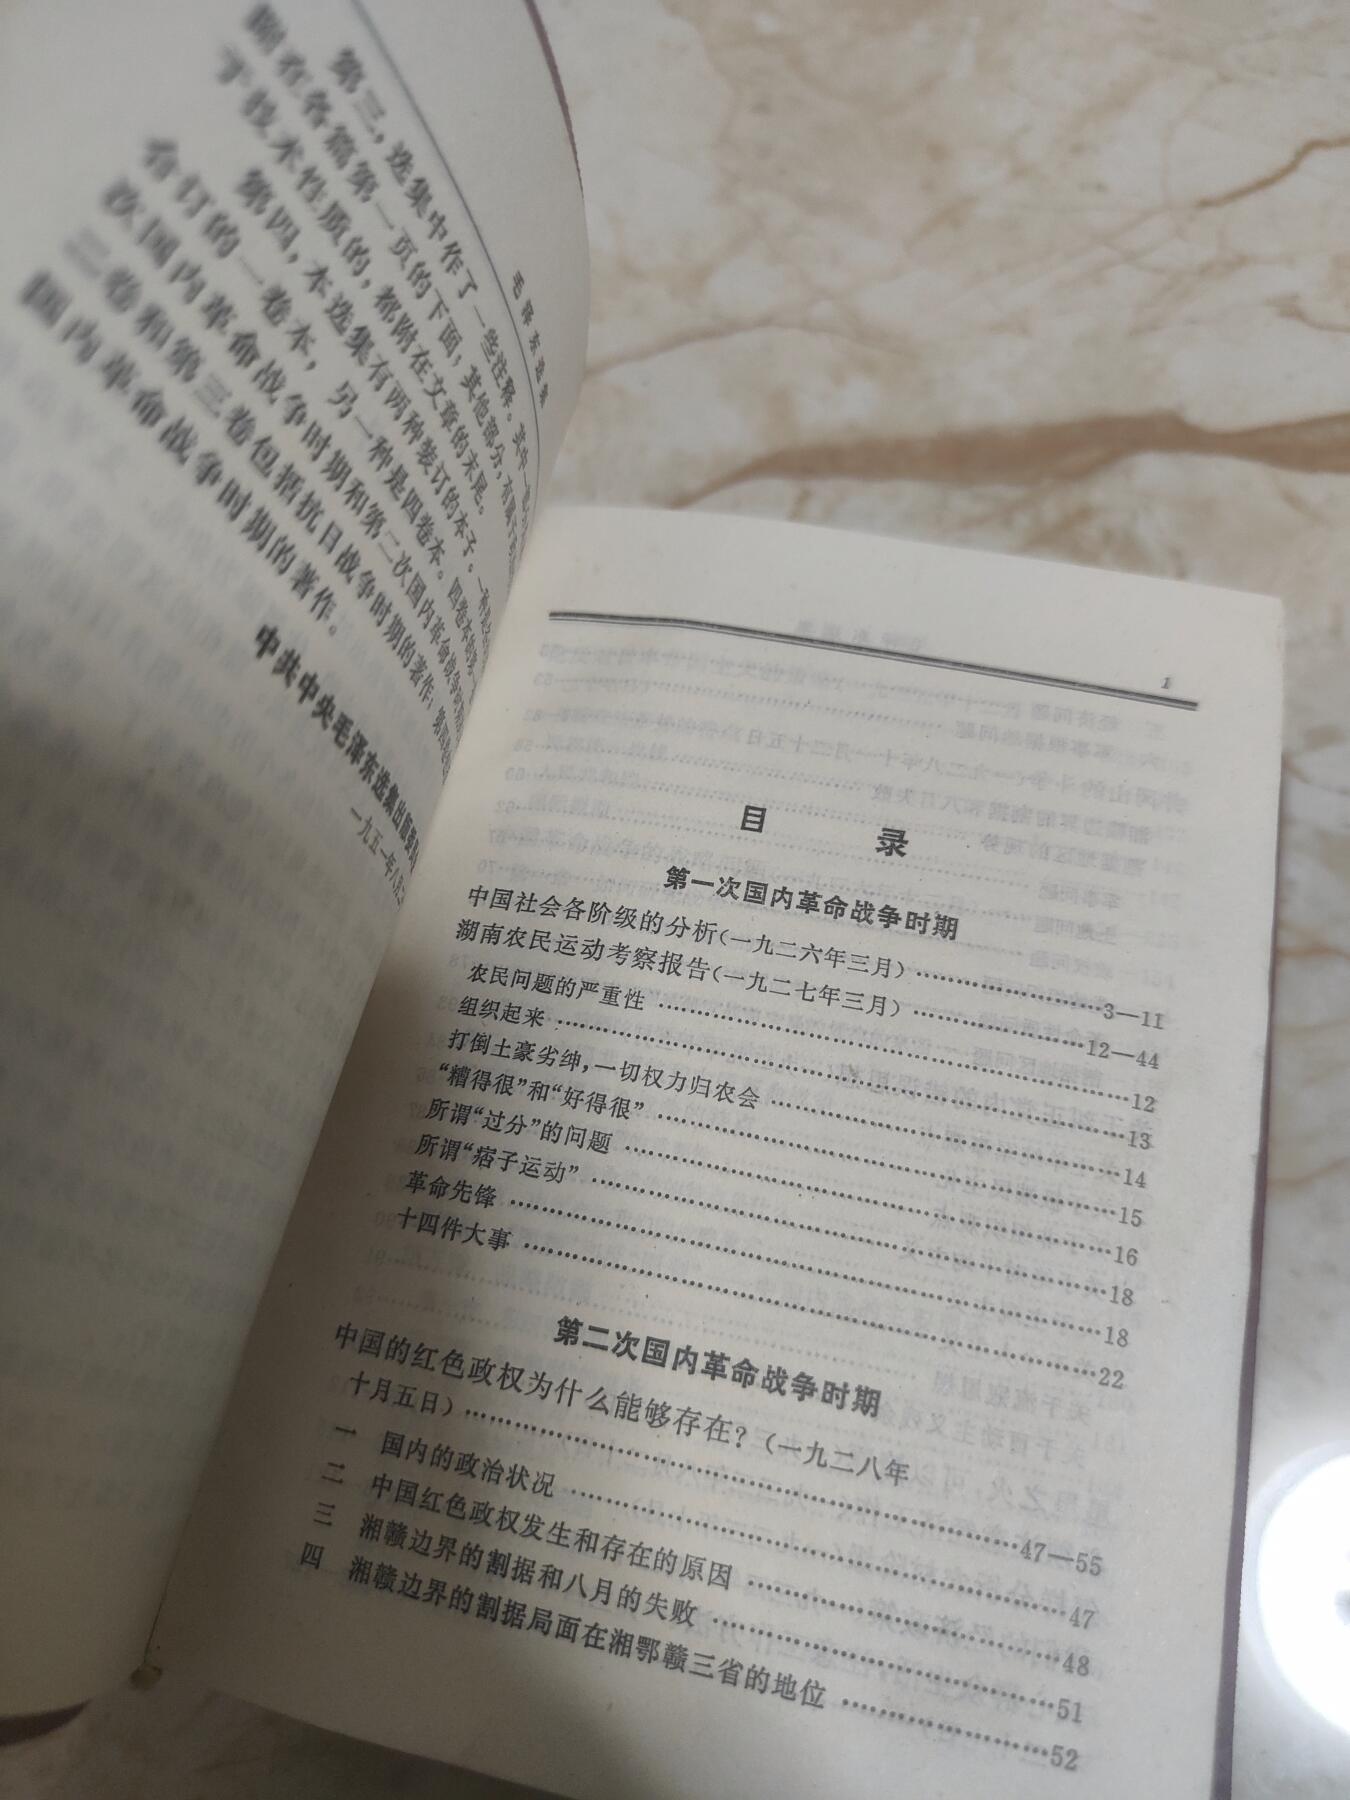 毛泽东选集
第三，选集中作了一些注释。其中一
在各篇第一页的下面；其他部分，有属于
于技术性质的，都附在文章的末尾。
第四，本选集有两种装订的本子。一种是
合订的一卷本，另一种是四卷本。四卷本的第一
次国内革命战争时期和第二次国内革命战争时期
二卷和第三卷包括抗日战争时期的著作；第四卷
国内革命战争时期的著作。
中共中央毛泽东选集出版委员
一九五一年八月
1
目 录
第一次国内革命战争时期
中国社会各阶级的分析（一九二六年三月）……3—11
湖南农民运动考察报告（一九二七年三月）……12—44
农民问题的严重性……12
组织起来……13
打倒土豪劣绅，一切权力归农会……14
“糟得很”和“好得很”……15
所谓“过分”的问题……16
所谓“痞子运动”……18
革命先锋……18
十四件大事……22
第二次国内革命战争时期
中国的红色政权为什么能够存在？（一九二八年
十月五日）……47—55
一 国内的政治状况……47
二 中国红色政权发生和存在的原因……48
三 湘赣边界的割据和八月的失败……51
四 湘赣边界的割据局面在湘鄂赣三省的地位……52